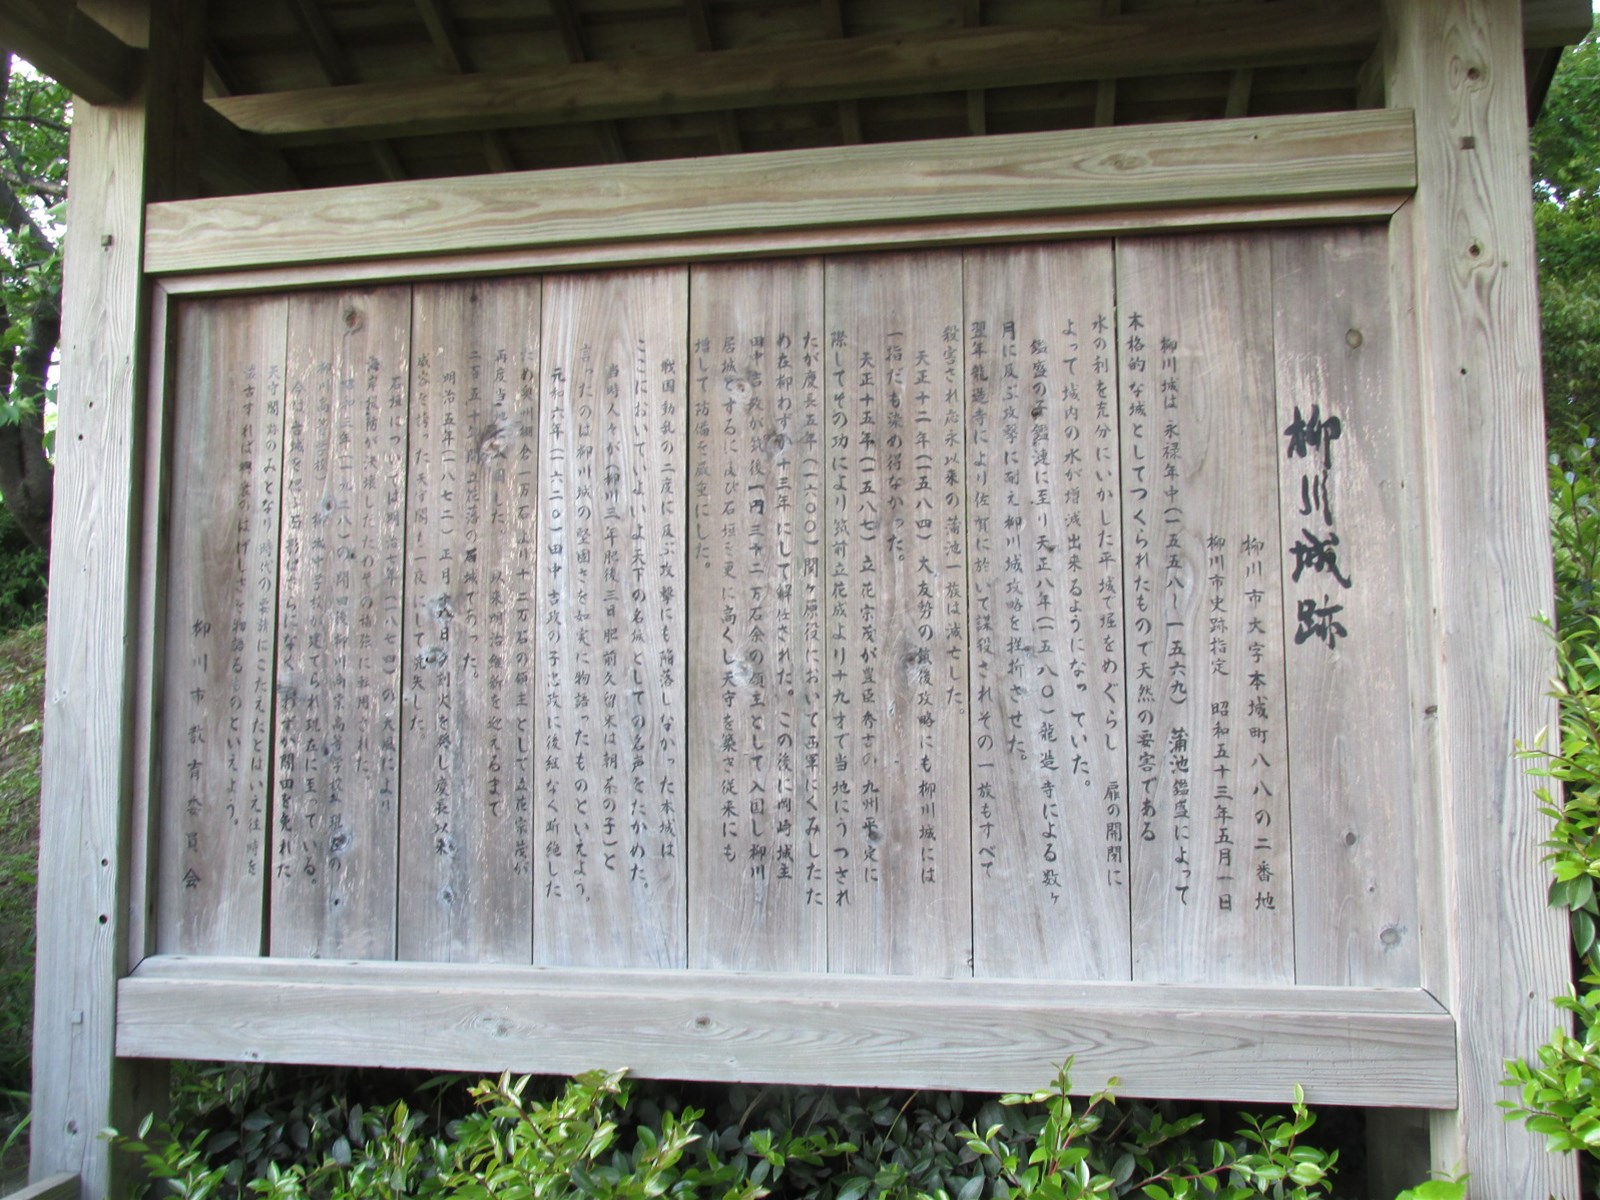 柳川城跡
柳川市大字本城町八八の二番地
柳川市史跡指定 昭和五十三年五月一日
柳川城は永禄年中(一五五八〜一五六九) 蒲池鑑盛によって
本格的な城としてつくられたもので天然の要害である
水の利を充分にいかした平城で堀をめぐらし 扉の開閉に
よって城内の水が増減出来るようになっていた。
鑑盛の子鑑漣に至り天正八年(一五八〇)龍造寺による数ヶ
月に及ぶ攻撃に耐え柳川城攻略を挫折させた。
翌年龍造寺により佐賀に於いて謀殺されその一族もすべて
殺害され応永以来の蒲池一族は滅亡した。
天正十二年(一五八四)大友勢の筑後攻略にも柳川城には
一指だも染め得なかった。
天正十五年(一五八七)立花宗茂が豊臣秀吉の九州平定に
際してその功により筑前立花城より十九才で当地にうつされ
たが慶長五年(一六〇〇)関ヶ原役において西軍にくみしたた
め在柳わずか十三年にして解任された。この後に岡崎城主
田中吉政が筑後一円三十二万石余の領主として入国し柳川
居城とするに及び石垣を更に高くし天守を築き従来にも
増して防備を厳重にした。
戦国動乱の二度に及ぶ攻撃にも陥落しなかった本城は
ここにおいていよいよ天下の名城としての名声をたかめた。
当時人々が(柳川三年肥後三月肥前久留米は朝茶の子)と
言ったのは柳川城の堅固さを如実に物語ったものといえよう。
元和六年(一六二〇)田中吉政の子忠政に後継なく断絶した
ため奥川棚倉一万石より十二万石の領主として立花宗茂が
再度当地に入国した。以来明治維新を迎えるまで
二百五十年間立花藩の居城であった。
明治五年(一八七二)正月十八日夜列火を発し慶長以来
威容を誇った天守閣も一夜にして焼失した。
石垣については明治七年(一八七四)の大風により
海岸堤防が決壊したためその補強に転用された。
昭和三年(一九二八)の開田後柳川商業高等学校(現在の
柳川高等学校) 柳城中学校が建てられ現在に至っている。
今は古城を偲ぶ面影はさらになく わずか開田を免れた
天守閣跡のみとなり時代の変遷にこたえたとはいえ往時を
懐古すれば興亡のはげしさを物語るものといえよう。
柳川市教育委員会